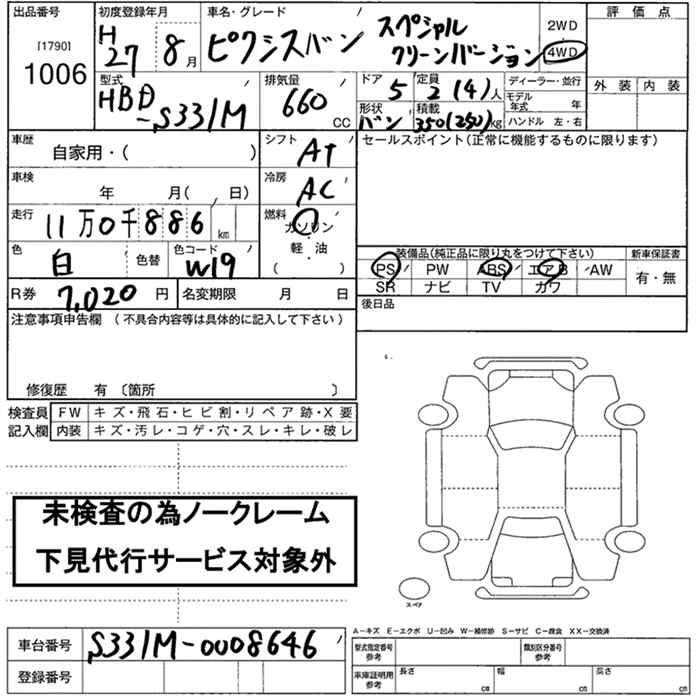 出品番号 初度登録年月 車名・グレード 2WD 評価点
[1790] 1006 H27 8月 ピクシスバン スペシャル クリーンバージョン 4WD
型式 排気量 ドア 定員 ディーラー・並行 外装 内装
HBD-S331M 660 CC 5 2(4)人 モデル年式 年
形状 積載 ハンドル 左・右
バン 350(250)kg
車歴 シフト セールスポイント(正常に機能するものに限ります)
自家用・( ) AT
車検 冷房
年 月( 、日) AC
走行 燃料
11万0千886km ガソリン
色 色替 色コード 軽・油
白 W19 ( )
装備品(純正品に限り丸をつけて下さい) 新車保証書
PS PW ABS エアB AW 有・無
SR ナビ TV カワ
R券 7,020円 名変期限 月 日
後日品
注意事項申告欄 (不具合内容等は具体的に記入して下さい)
修復歴 有 〔箇所 〕
検査員 FW キズ・飛石・ヒビ割・リペア跡・X要
記入欄 内装 キズ・汚レ・コゲ・穴・スレ・キレ・破レ
未検査の為ノークレーム
下見代行サービス対象外
スペア
A－キズ E－エクボ U－凹み W－補修跡 S－サビ C－腐食 XX－交換済
車台番号 S331M-0008646
型式指定番号 参考 類別区分番号 参考
登録番号
車庫証明用 参考 長さ cm 幅 cm 高さ cm